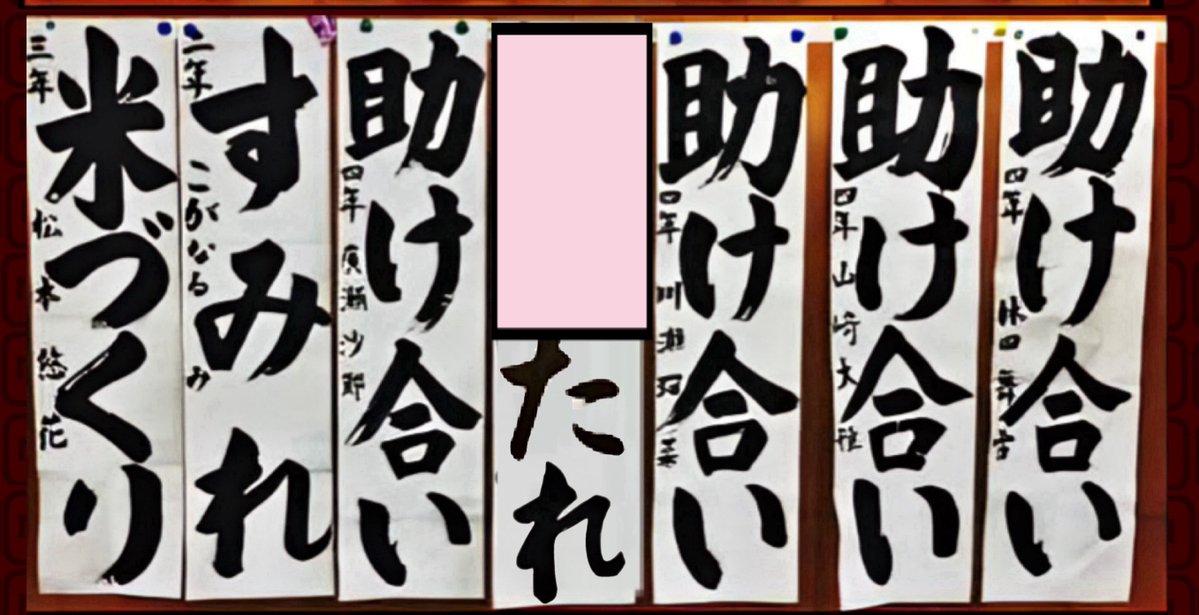 助け合い
四年
助け合い
四年 山崎大
助け合い
四年 川瀬
たれ
助け合い
四年 廣瀬沙
すみれ
二年 こがなるみ
米づくり
三年 松本悠花